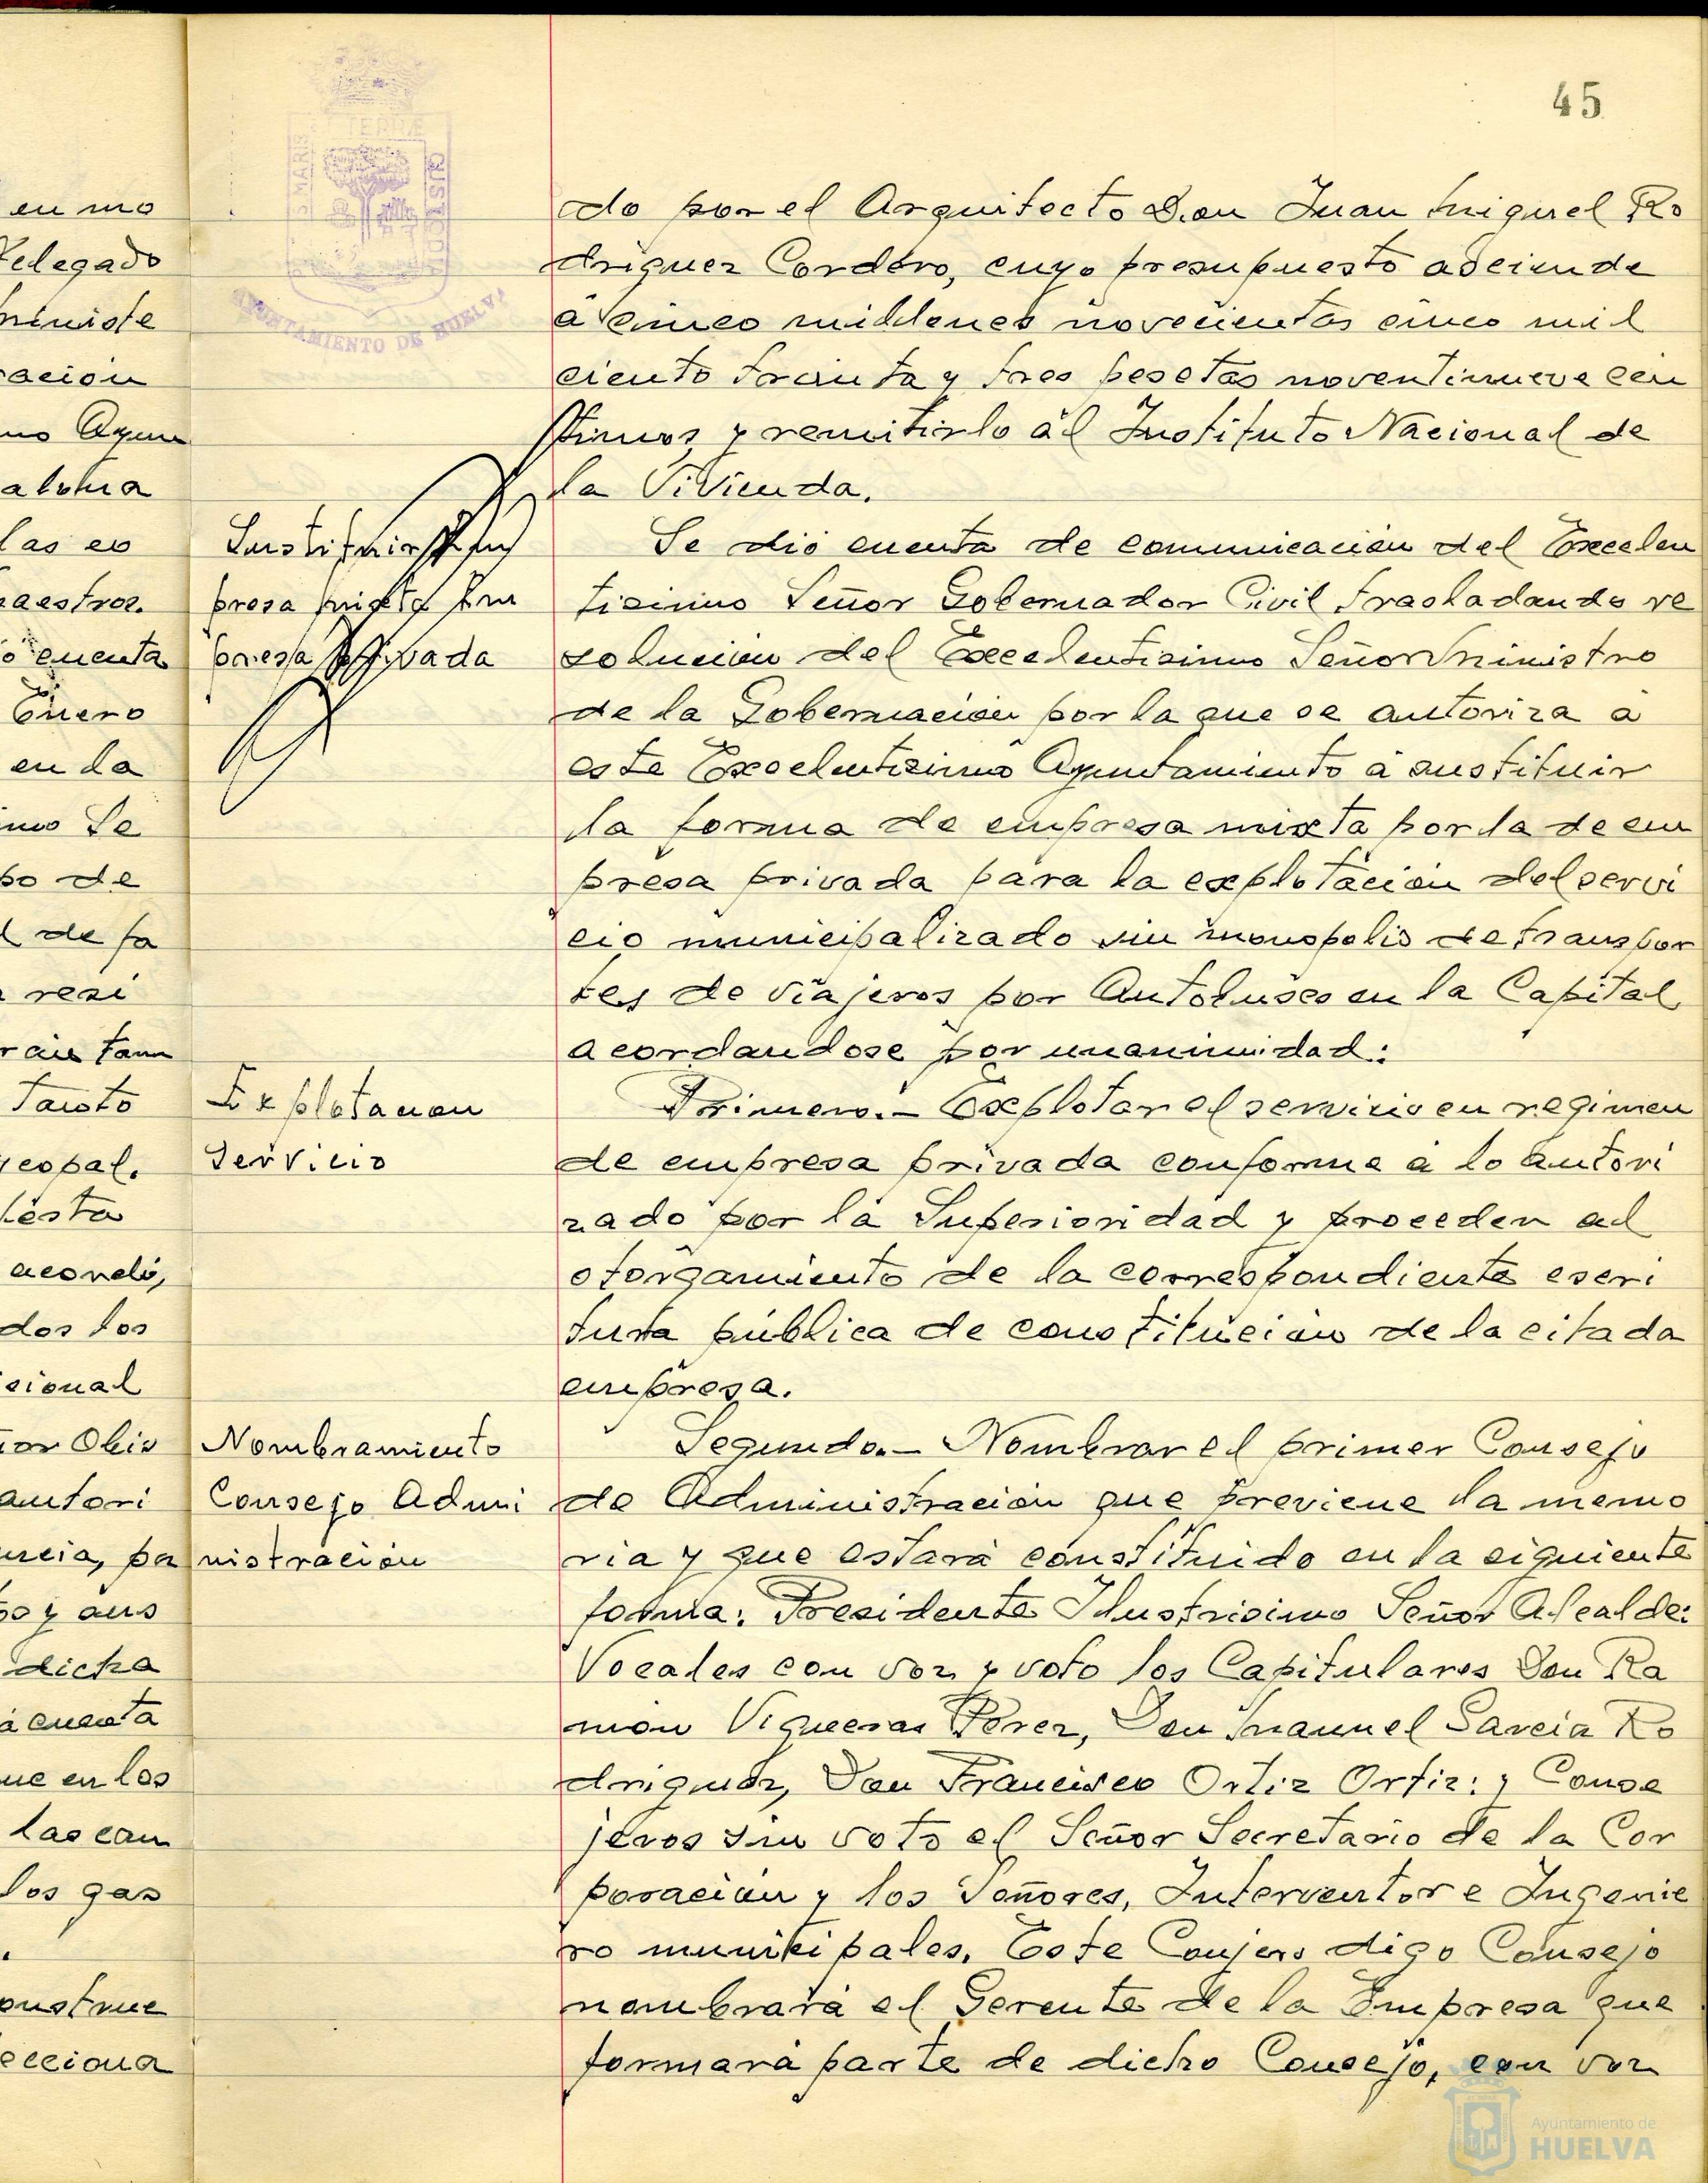 45
en mo
elegado
ministe
ración
mo Ayun
atoma
las es
maestros.
o cuenta
Enero
en la
imo Se
po de
l de fa
resi
ran tam
Tanto
icopal.
iesta
acordó,
dos los
cional
ñor Obis
autori
uncia, por
so y aus
dicha
á cuenta
que en los
las can
los gas
onstruc
ecciona
S MARIS
TERRÆ
CUSTODIA
AYUNTAMIENTO DE HUELVA
do por el Arquitecto Don Juan Miguel Ro
driguez Cordero, cuyo presupuesto asciende
a cinco millones novecientas cinco mil
ciento treinta y tres pesetas noventinueve cen
timos, y remitirlo al Instituto Nacional de
la Vivienda.
Sustituir Em
presa mixta Em
presa Privada
Se dió cuenta de comunicación del Excelen
tisimo Señor Gobernador Civil trasladando re
solucion del Excelentisimo Señor Ministro
de la Gobernación por la que se autoriza a
este Excelentisimo Ayuntamiento a sustituir
la forma de empresa mixta por la de em
presa privada para la explotación del servi
cio municipalizado sin monopolio de transpor
tes de viajeros por Autobuses en la Capital
acordandose por unanimidad:
Explotacion
Servicio
Primero.- Explotar el servicio en regimen
de empresa privada conforme a lo autori
zado por la Superioridad y proceder al
otorgamiento de la correspondiente escri
tura pública de constitución de la citada
empresa.
Nombramiento
Consejo Admi
nistración
Segundo.- Nombrar el primer Consejo
de Administración que previene la memo
ria y que estará constituido en la siguiente
forma: Presidente Ilustrisimo Señor Alcalde:
Vocales con voz y voto los Capitulares Don Ra
mon Vigueras Perez, Don Manuel Garcia Ro
driguez, Don Francisco Ortiz Ortiz: y Conse
jeros sin voto el Señor Secretario de la Cor
poración y los Señores, Interventor e Ingenie
ro municipales. Este Conjero digo Consejo
nombrará el Gerente de la Empresa que
formará parte de dicho Consejo, con voz
Ayuntamiento de
HUELVA